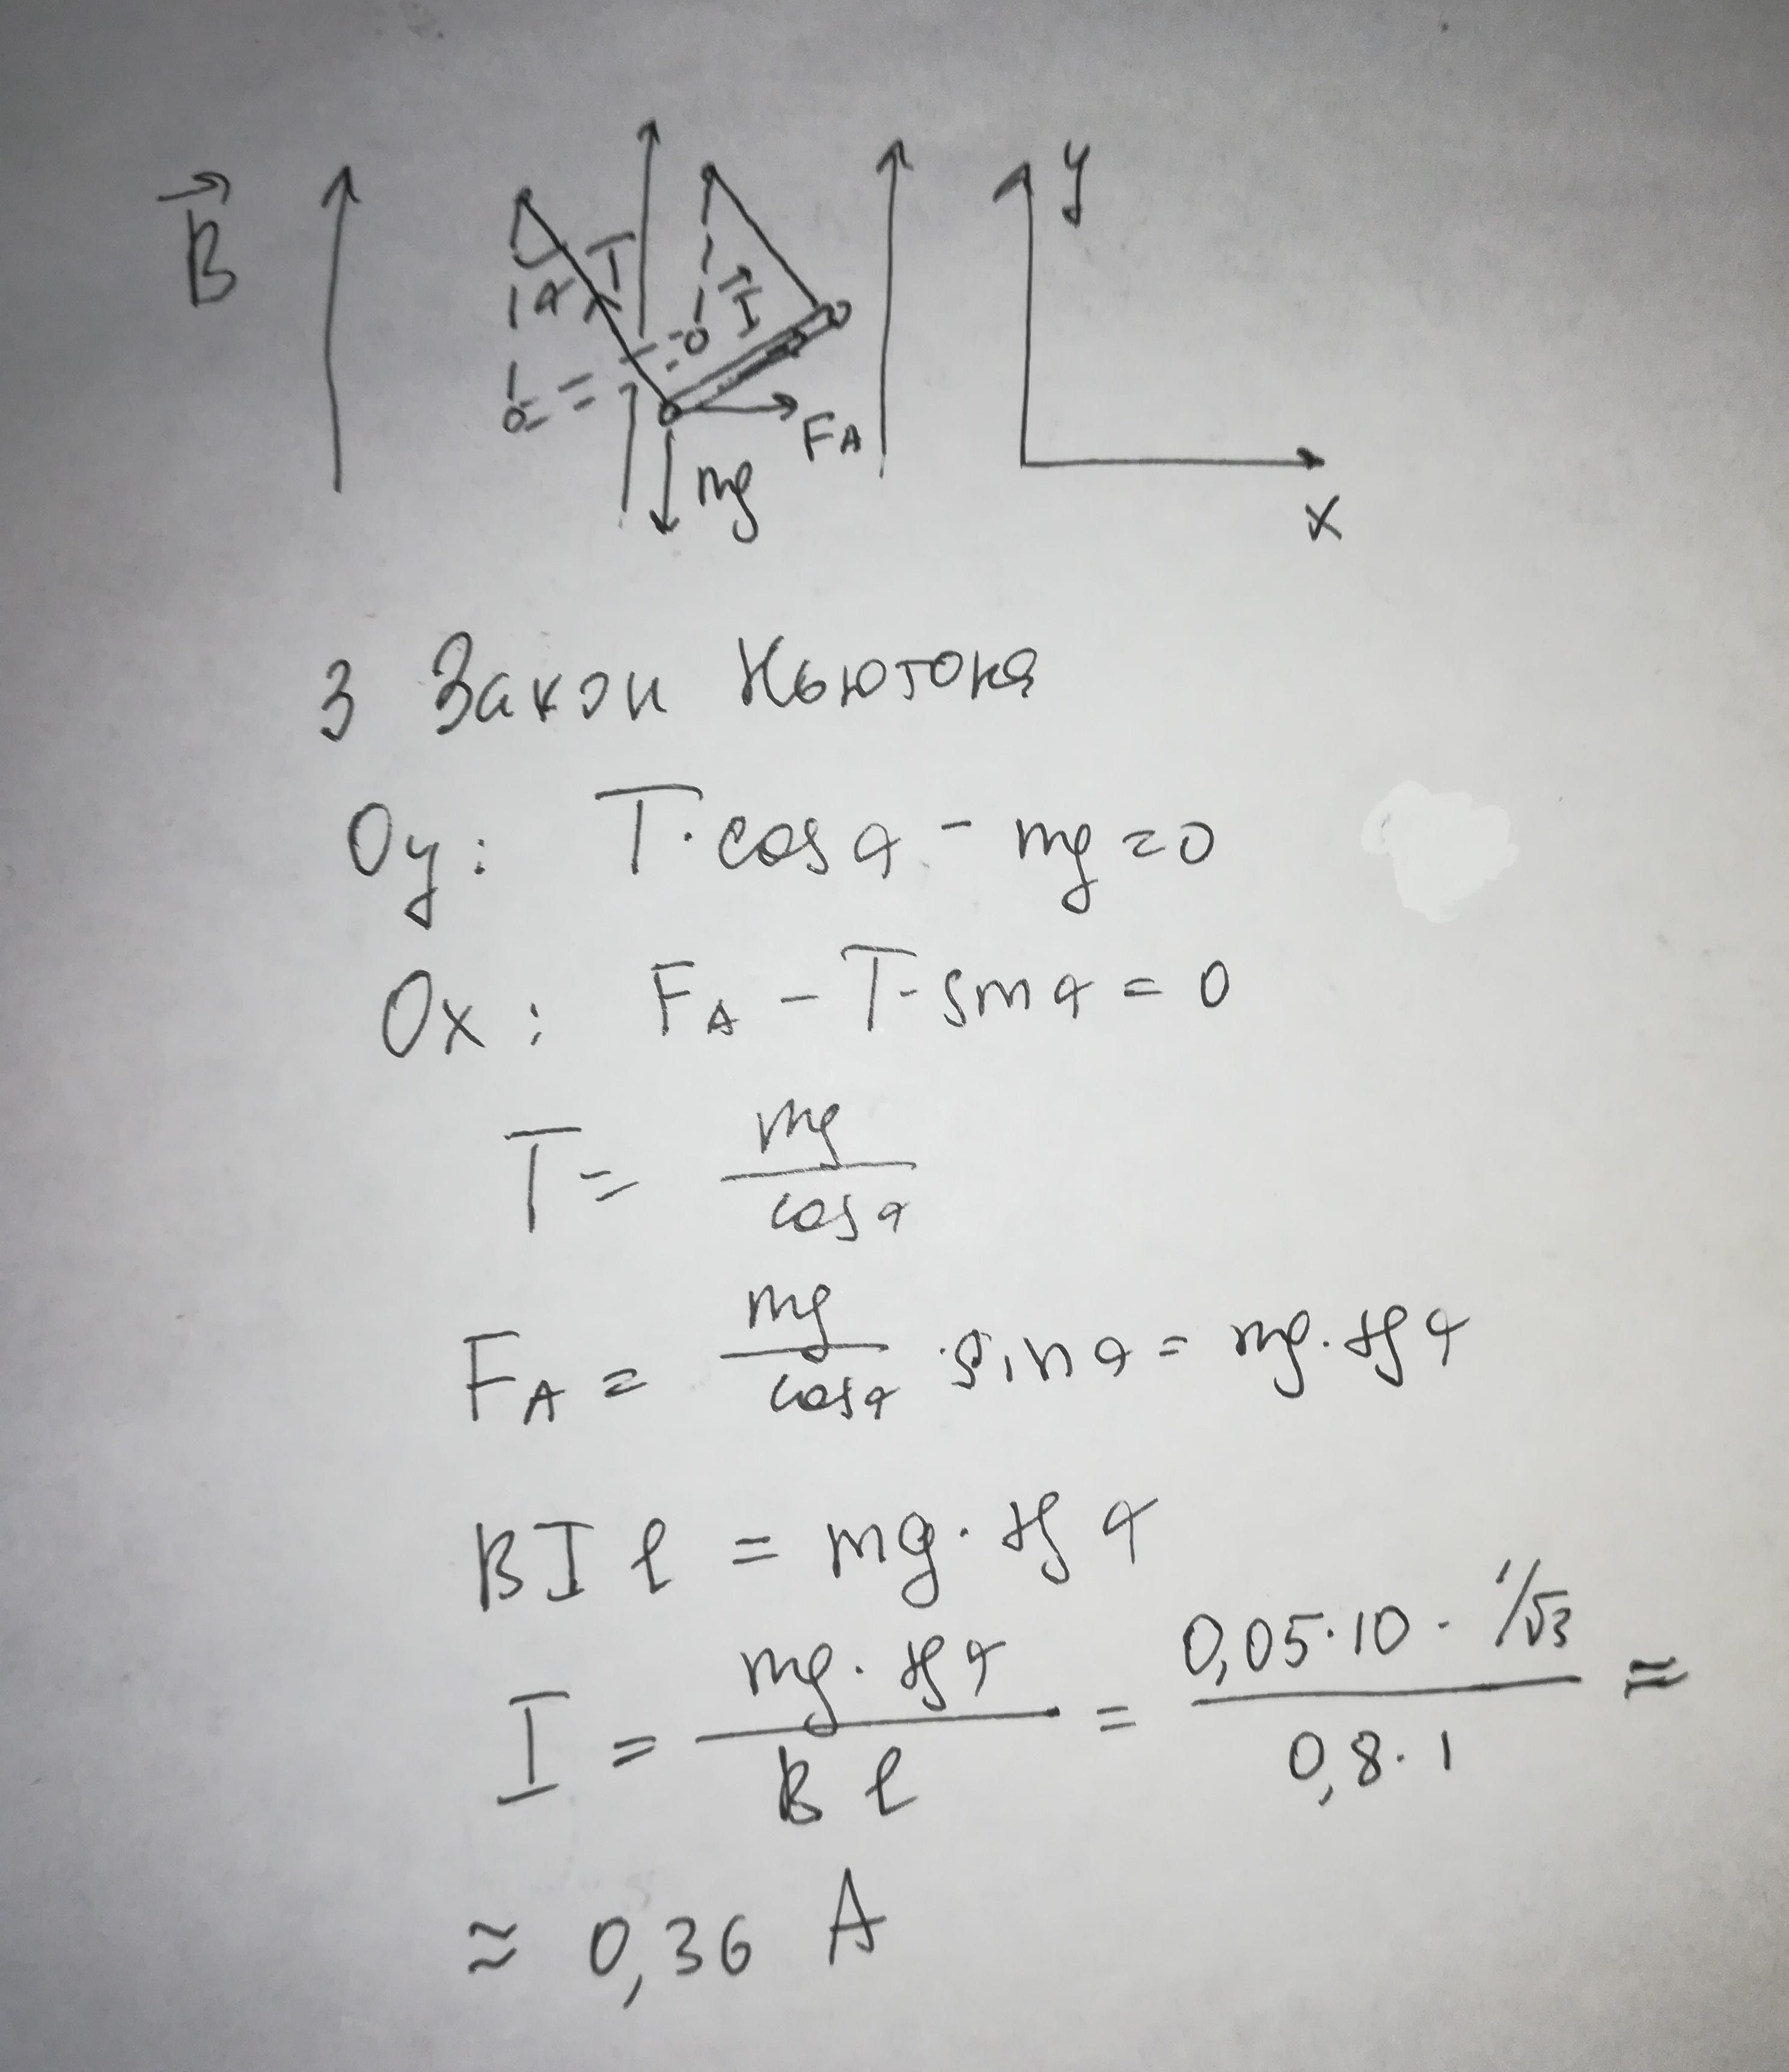 B⃗
y
T
α
I⃗
F_A
mg
x
3 Закон Ньютона
Oy: T·cos α - mg = 0
Ox: F_A - T·sin α = 0
T = mg/cos α
F_A = mg/cos α · sin α = mg·tg α
BIl = mg·tg α
I = mg·tg α/Bl = 0,05·10·1/√3/0,8·1 ≈
≈ 0,36 A